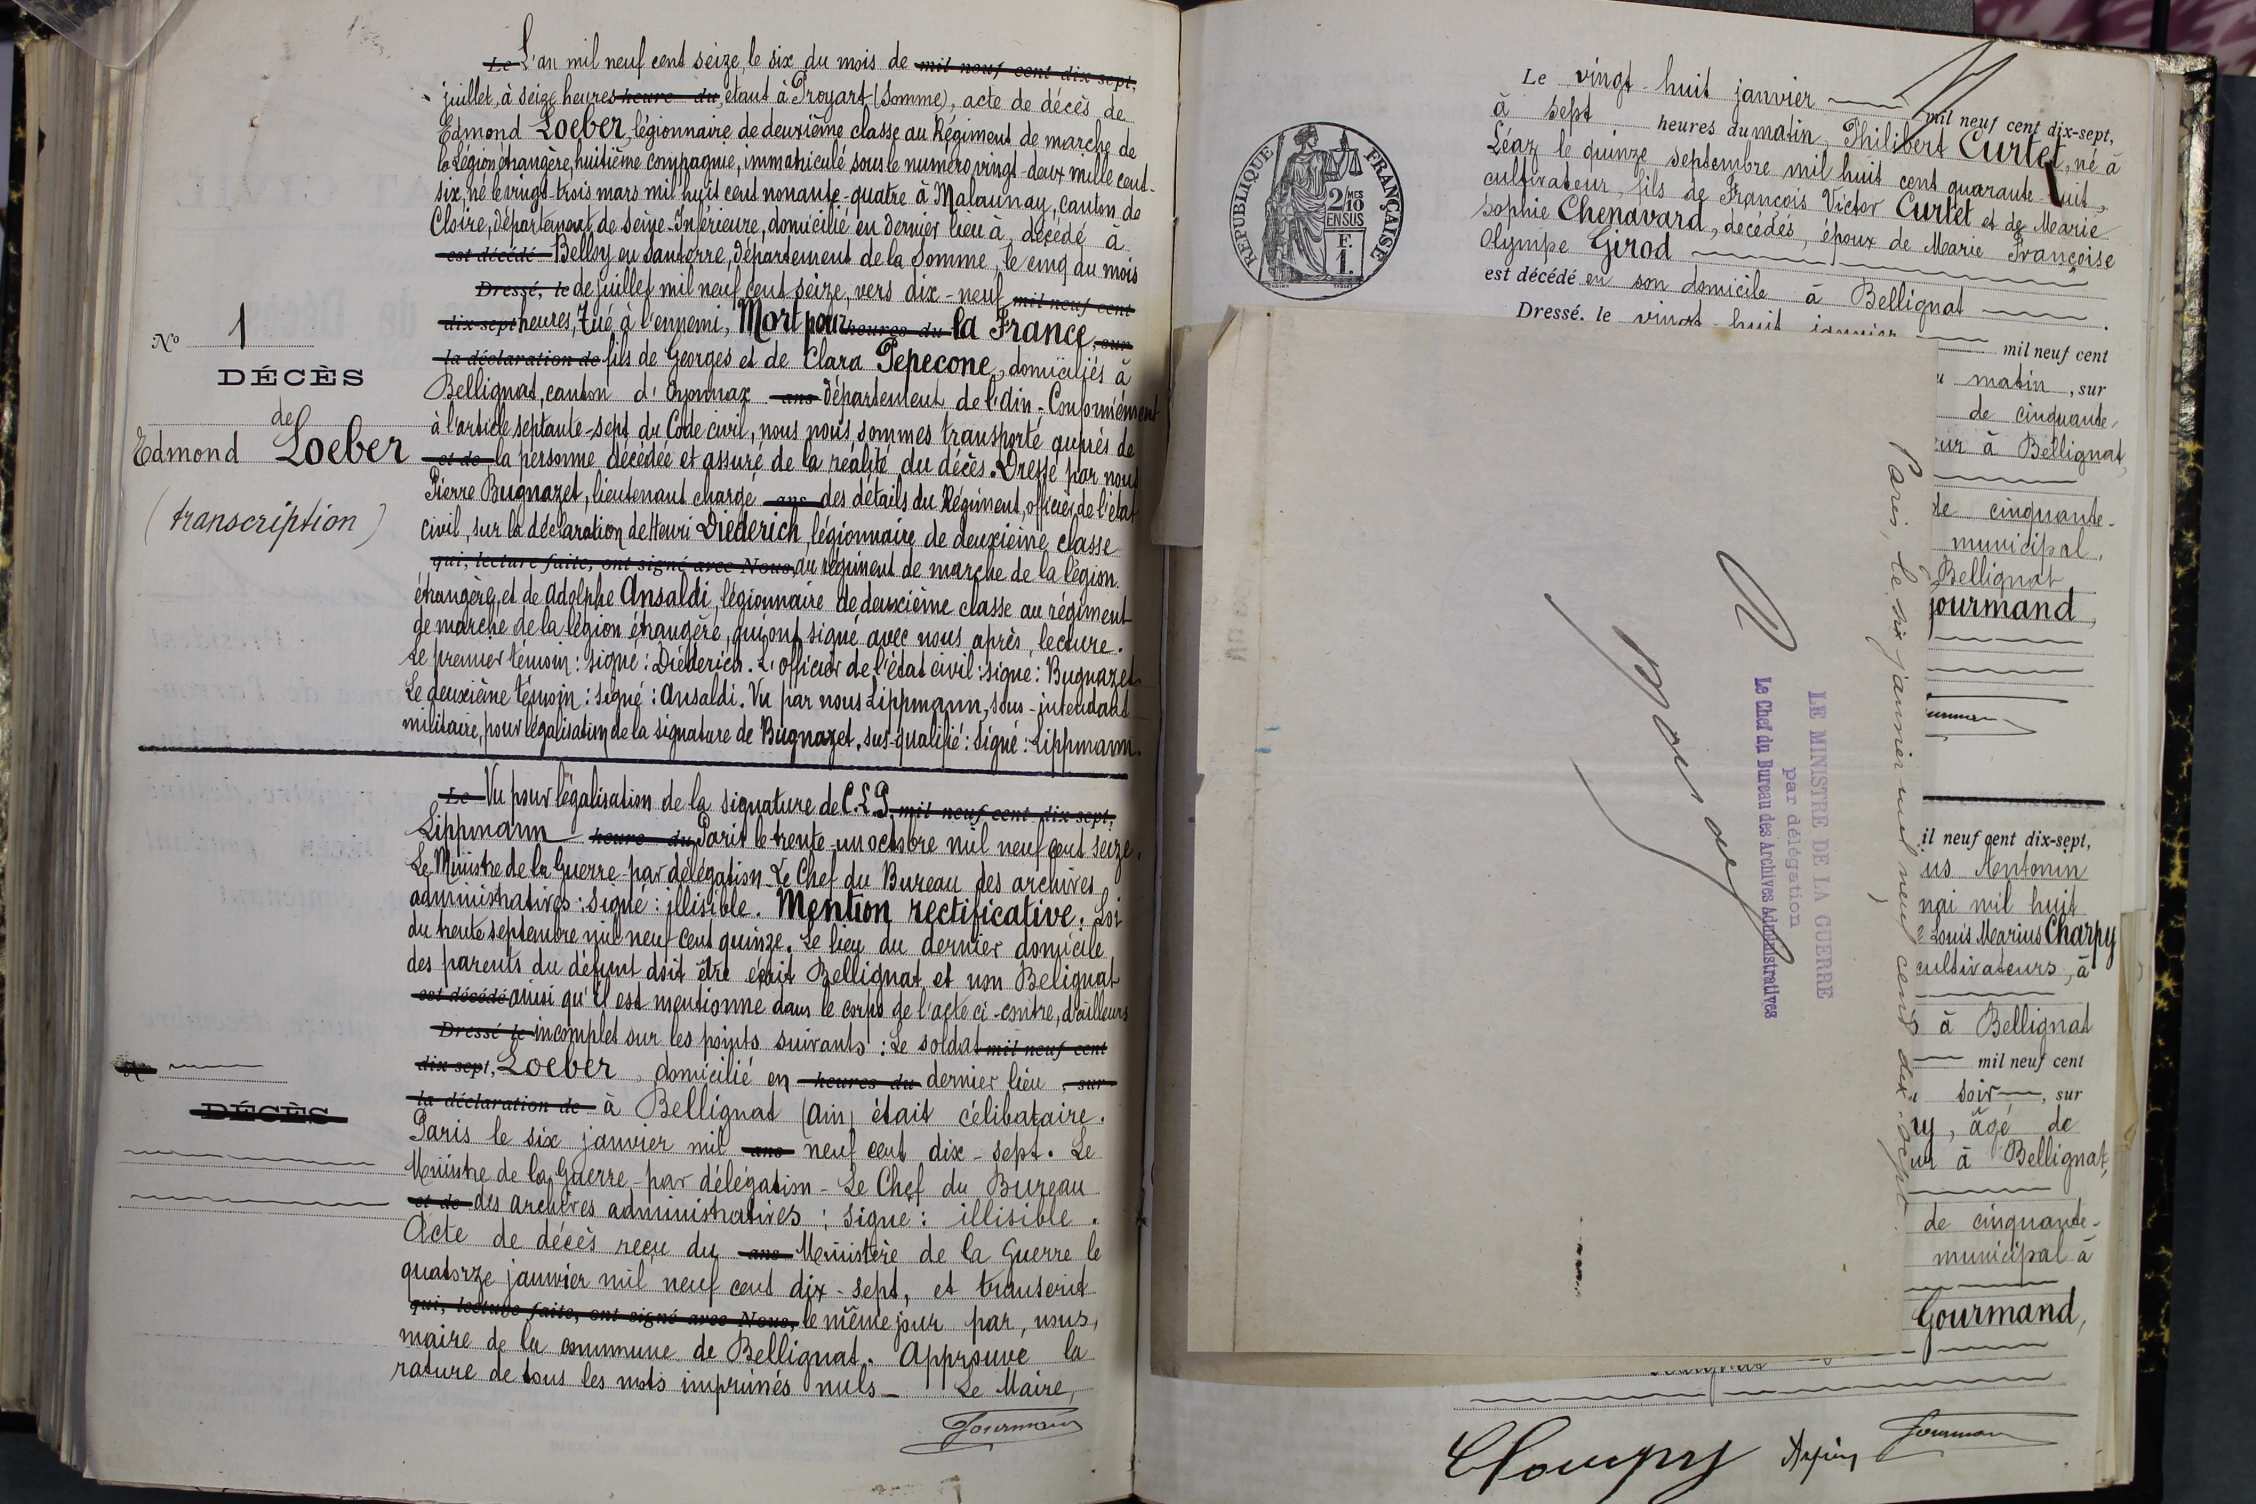 Le L'an mil neuf cent seize, le six du mois de mil neuf cent dix-sept,
juillet, à seize heures heure du, étant à Proyart (Somme), acte de décès de
Edmond Loeber, légionnaire de deuxième classe au Régiment de marche de
la Légion étrangère, huitième compagnie, immatriculé sous le numéro vingt-deux mille cent-
six, né le vingt-trois mars mil huit cent nonante-quatre à Malaunay, canton de
Cloire, département de Seine-Inférieure, domicilié en dernier lieu à, décédé à
est décédé Belloy en Santerre, département de la Somme, le cinq du mois
Dressé, le de juillet mil neuf cent seize, vers dix-neuf mil neuf cent
dix sept heures, Tué à l'ennemi, Mort pour heures du la France, sur
la déclaration de fils de Georges et de Clara Pepecone, domiciliés à
Bellignat, canton d'Oyonnax ans département de l'Ain. Conformément
à l'article septante-sept du Code civil, nous nous sommes transporté auprès de
et de la personne décédée et assuré de la réalité du décès. Dressé par nous
Pierre Bugnazet, lieutenant chargé ans des détails du Régiment, officier de l'état
civil, sur la déclaration de Henri Diéderich, légionnaire de deuxième classe
qui, lecture faite, ont signé avec Nous, au régiment de marche de la légion
étrangère, et de Adolphe Ansaldi, légionnaire de deuxième classe au régiment
de marche de la légion étrangère, qui ont signé avec nous après lecture.
Le premier témoin : signé : Diéderich. L'officier de l'état civil : signé : Bugnazet
Le deuxième témoin : signé : Ansaldi. Vu par nous Lippmann, sous-intendant
militaire, pour légalisation de la signature de Bugnazet, sus-qualifié : signé : Lippmann.
No 1
DÉCÈS
de
Edmond Loeber
(transcription)
Le Vu pour légalisation de la signature de C.L.P. mil neuf cent dix-sept,
Lippmann heure du Paris le trente-un octobre mil neuf cent seize.
Le Ministre de la Guerre - par délégation - Le Chef du Bureau des archives
administratives : signé : illisible. Mention rectificative. Loi
du trente septembre mil neuf cent quinze. Le lieu du dernier domicile
des parents du défunt doit être écrit Bellignat et non Belignat
est décédé ainsi qu'il est mentionné dans le corps de l'acte ci-contre, d'ailleurs
Dressé le incomplet sur les points suivants : Le soldat mil neuf cent
dix sept, Loeber, domicilié en heures du dernier lieu, sur
la déclaration de à Bellignat (Ain) était célibataire.
Paris le six janvier mil ans neuf cent dix-sept. Le
Ministre de la Guerre - par délégation - Le Chef du Bureau
et de des archives administratives : signé : illisible.
Acte de décès reçu du ans Ministère de la Guerre le
quatorze janvier mil neuf cent dix-sept, et transcrit
qui, lecture faite, ont signé avec Nous, le même jour par, nous,
maire de la commune de Bellignat. Approuvé la
rature de tous les mots imprimés nuls - Le Maire,
Gourmand
DÉCÈS
REPUBLIQUE FRANÇAISE
2/10 MES
EN SUS
F.
1.
Le vingt-huit janvier mil neuf cent dix-sept,
à sept heures du matin, Philibert Curtet, né à
Léaz le quinze septembre mil huit cent quarante-huit,
cultivateur, fils de François Victor Curtet et de Marie
Sophie Chenavard, décédés, époux de Marie Françoise
Olympe Girod
est décédé en son domicile à Bellignat
Dressé, le vingt-huit janvier
mil neuf cent
matin, sur
de cinquante-
ur à Bellignat,
de cinquante-
municipal,
Bellignat
Gourmand,
Paris, le six janvier mil neuf cent dix-sept.
LE MINISTRE DE LA GUERRE
par délégation
Le Chef du Bureau des Archives Administratives
il neuf cent dix-sept,
us Antonin
mai mil huit
Louis Marius Charpy
cultivateurs, à
à Bellignat
mil neuf cent
soir, sur
y, âgé de
ur à Bellignat,
de cinquante-
municipal à
Gourmand,
Charpy
Gourmand